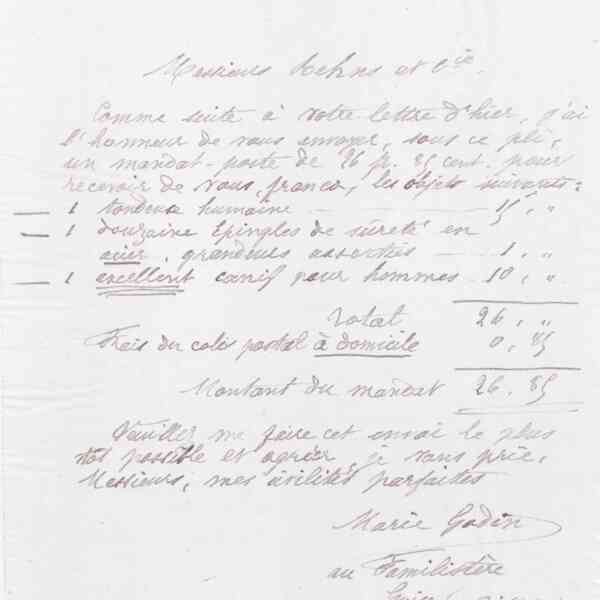 Messieurs Rehns et Cie.
Comme suite à votre lettre d'hier, j'ai
l'honneur de vous envoyer, sous ce pli,
un mandat-poste de 26 f. 85 cent. pour
recevoir de vous, franco, les objets suivants:
— 1 tondeuse humaine — 15, "
— 1 douzaine épingles de sûreté en
acier, grandeurs assorties — 1, "
— 1 excellent canif pour hommes — 10, "
Total 26, "
Frais du colis postal à domicile 0, 85
Montant du mandat 26.85
Veuillez me faire cet envoi le plus
tôt possible et agréer, je vous prie,
Messieurs, mes civilités parfaites
Marie Godin
au Familistère